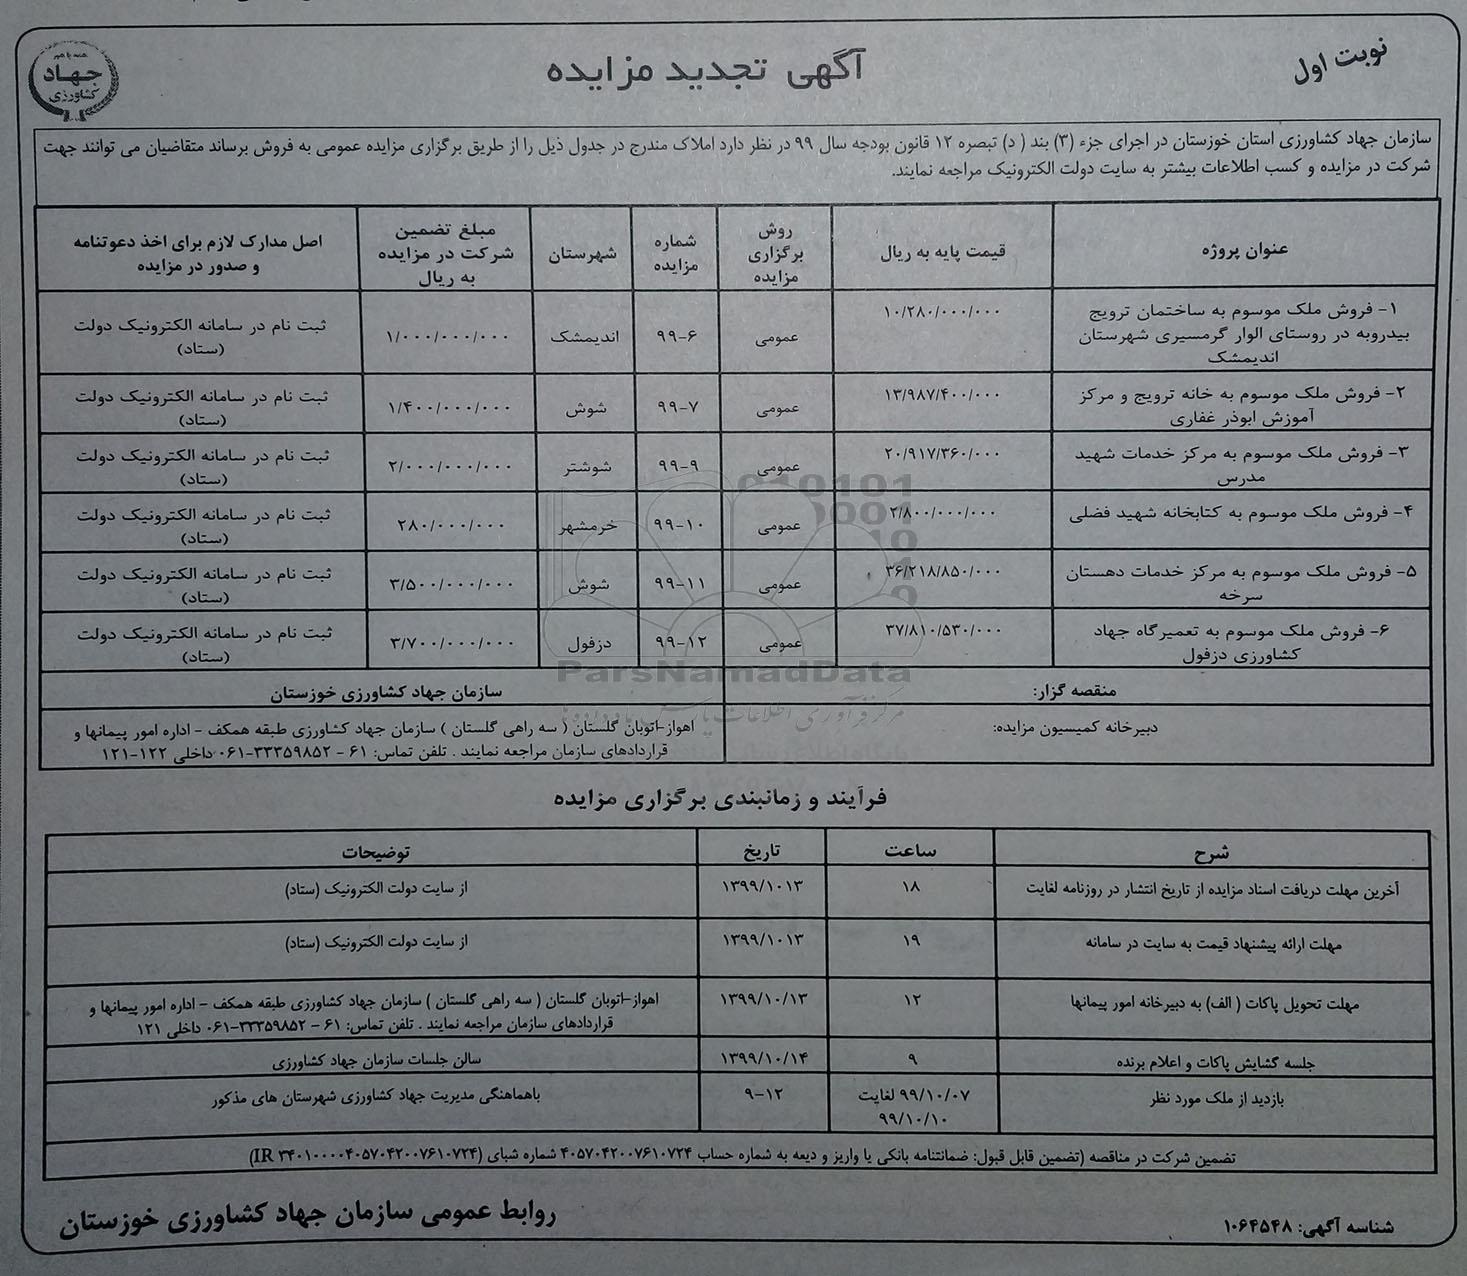 نوبت اول
آگهی تجدید مزایده
همه با هم
جهاد
کشاورزی
سازمان جهاد کشاورزی استان خوزستان در اجرای جزء (۳) بند ( د) تبصره ۱۲ قانون بودجه سال ۹۹ در نظر دارد املاک مندرج در جدول ذیل را از طریق برگزاری مزایده عمومی به فروش برساند متقاضیان می توانند جهت
شرکت در مزایده و کسب اطلاعات بیشتر به سایت دولت الکترونیک مراجعه نمایند.
عنوان پروژه
قیمت پایه به ریال
روش
برگزاری
مزایده
شماره
مزایده
شهرستان
مبلغ تضمین
شرکت در مزایده
به ریال
اصل مدارک لازم برای اخذ دعوتنامه
و صدور در مزایده
۱- فروش ملک موسوم به ساختمان ترویج
بیدروبه در روستای الوار گرمسیری شهرستان
اندیمشک
۱۰/۲۸۰/۰۰۰/۰۰۰
عمومی
۹۹-۶
اندیمشک
۱/۰۰۰/۰۰۰/۰۰۰
ثبت نام در سامانه الکترونیک دولت
(ستاد)
۲- فروش ملک موسوم به خانه ترویج و مرکز
آموزش ابوذر غفاری
۱۳/۹۸۷/۴۰۰/۰۰۰
عمومی
۹۹-۷
شوش
۱/۴۰۰/۰۰۰/۰۰۰
ثبت نام در سامانه الکترونیک دولت
(ستاد)
۳- فروش ملک موسوم به مرکز خدمات شهید
مدرس
۲۰/۹۱۷/۳۶۰/۰۰۰
عمومی
۹۹-۹
شوشتر
۲/۰۰۰/۰۰۰/۰۰۰
ثبت نام در سامانه الکترونیک دولت
(ستاد)
۴- فروش ملک موسوم به کتابخانه شهید فضلی
۲/۸۰۰/۰۰۰/۰۰۰
عمومی
۹۹-۱۰
خرمشهر
۲۸۰/۰۰۰/۰۰۰
ثبت نام در سامانه الکترونیک دولت
(ستاد)
۵- فروش ملک موسوم به مرکز خدمات دهستان
سرخه
۳۶/۲۱۸/۸۵۰/۰۰۰
عمومی
۹۹-۱۱
شوش
۳/۵۰۰/۰۰۰/۰۰۰
ثبت نام در سامانه الکترونیک دولت
(ستاد)
۶- فروش ملک موسوم به تعمیرگاه جهاد
کشاورزی دزفول
۳۷/۸۱۰/۵۳۰/۰۰۰
عمومی
۹۹-۱۲
دزفول
۳/۷۰۰/۰۰۰/۰۰۰
ثبت نام در سامانه الکترونیک دولت
(ستاد)
ParsNamadData
منقصه گزار:
سازمان جهاد کشاورزی خوزستان
دبیرخانه کمیسیون مزایده:
اهواز-اتوبان گلستان ( سه راهی گلستان ) سازمان جهاد کشاورزی طبقه همکف - اداره امور پیمانها و
قراردادهای سازمان مراجعه نمایند . تلفن تماس: ۶۱ - ۳۳۳۵۹۸۵۲-۰۶۱ داخلی ۱۲۲-۱۲۱
فرآیند و زمانبندی برگزاری مزایده
شرح
ساعت
تاریخ
توضیحات
آخرین مهلت دریافت اسناد مزایده از تاریخ انتشار در روزنامه لغایت
۱۸
۱۳۹۹/۱۰۱۳
از سایت دولت الکترونیک (ستاد)
مهلت ارائه پیشنهاد قیمت به سایت در سامانه
۱۹
۱۳۹۹/۱۰۱۳
از سایت دولت الکترونیک (ستاد)
مهلت تحویل پاکات ( الف) به دبیرخانه امور پیمانها
۱۲
۱۳۹۹/۱۰/۱۳
اهواز-اتوبان گلستان ( سه راهی گلستان ) سازمان جهاد کشاورزی طبقه همکف - اداره امور پیمانها و
قراردادهای سازمان مراجعه نمایند . تلفن تماس: ۶۱ - ۳۳۳۵۹۸۵۲-۰۶۱ داخلی ۱۲۱
جلسه گشایش پاکات و اعلام برنده
۹
۱۳۹۹/۱۰/۱۴
سالن جلسات سازمان جهاد کشاورزی
بازدید از ملک مورد نظر
۹۹/۱۰/۰۷ لغایت
۹۹/۱۰/۱۰
۹-۱۲
باهماهنگی مدیریت جهاد کشاورزی شهرستان های مذکور
تضمین شرکت در مناقصه (تضمین قابل قبول: ضمانتنامه بانکی یا واریز و دیعه به شماره حساب ۴۰۵۷۰۴۲۰۰۷۶۱۰۷۲۴ شماره شبای (IR ۳۴۰۱۰۰۰۰۴۰۵۷۰۴۲۰۰۷۶۱۰۷۲۴)
شناسه آگهی: ۱۰۶۴۵۴۸
روابط عمومی سازمان جهاد کشاورزی خوزستان